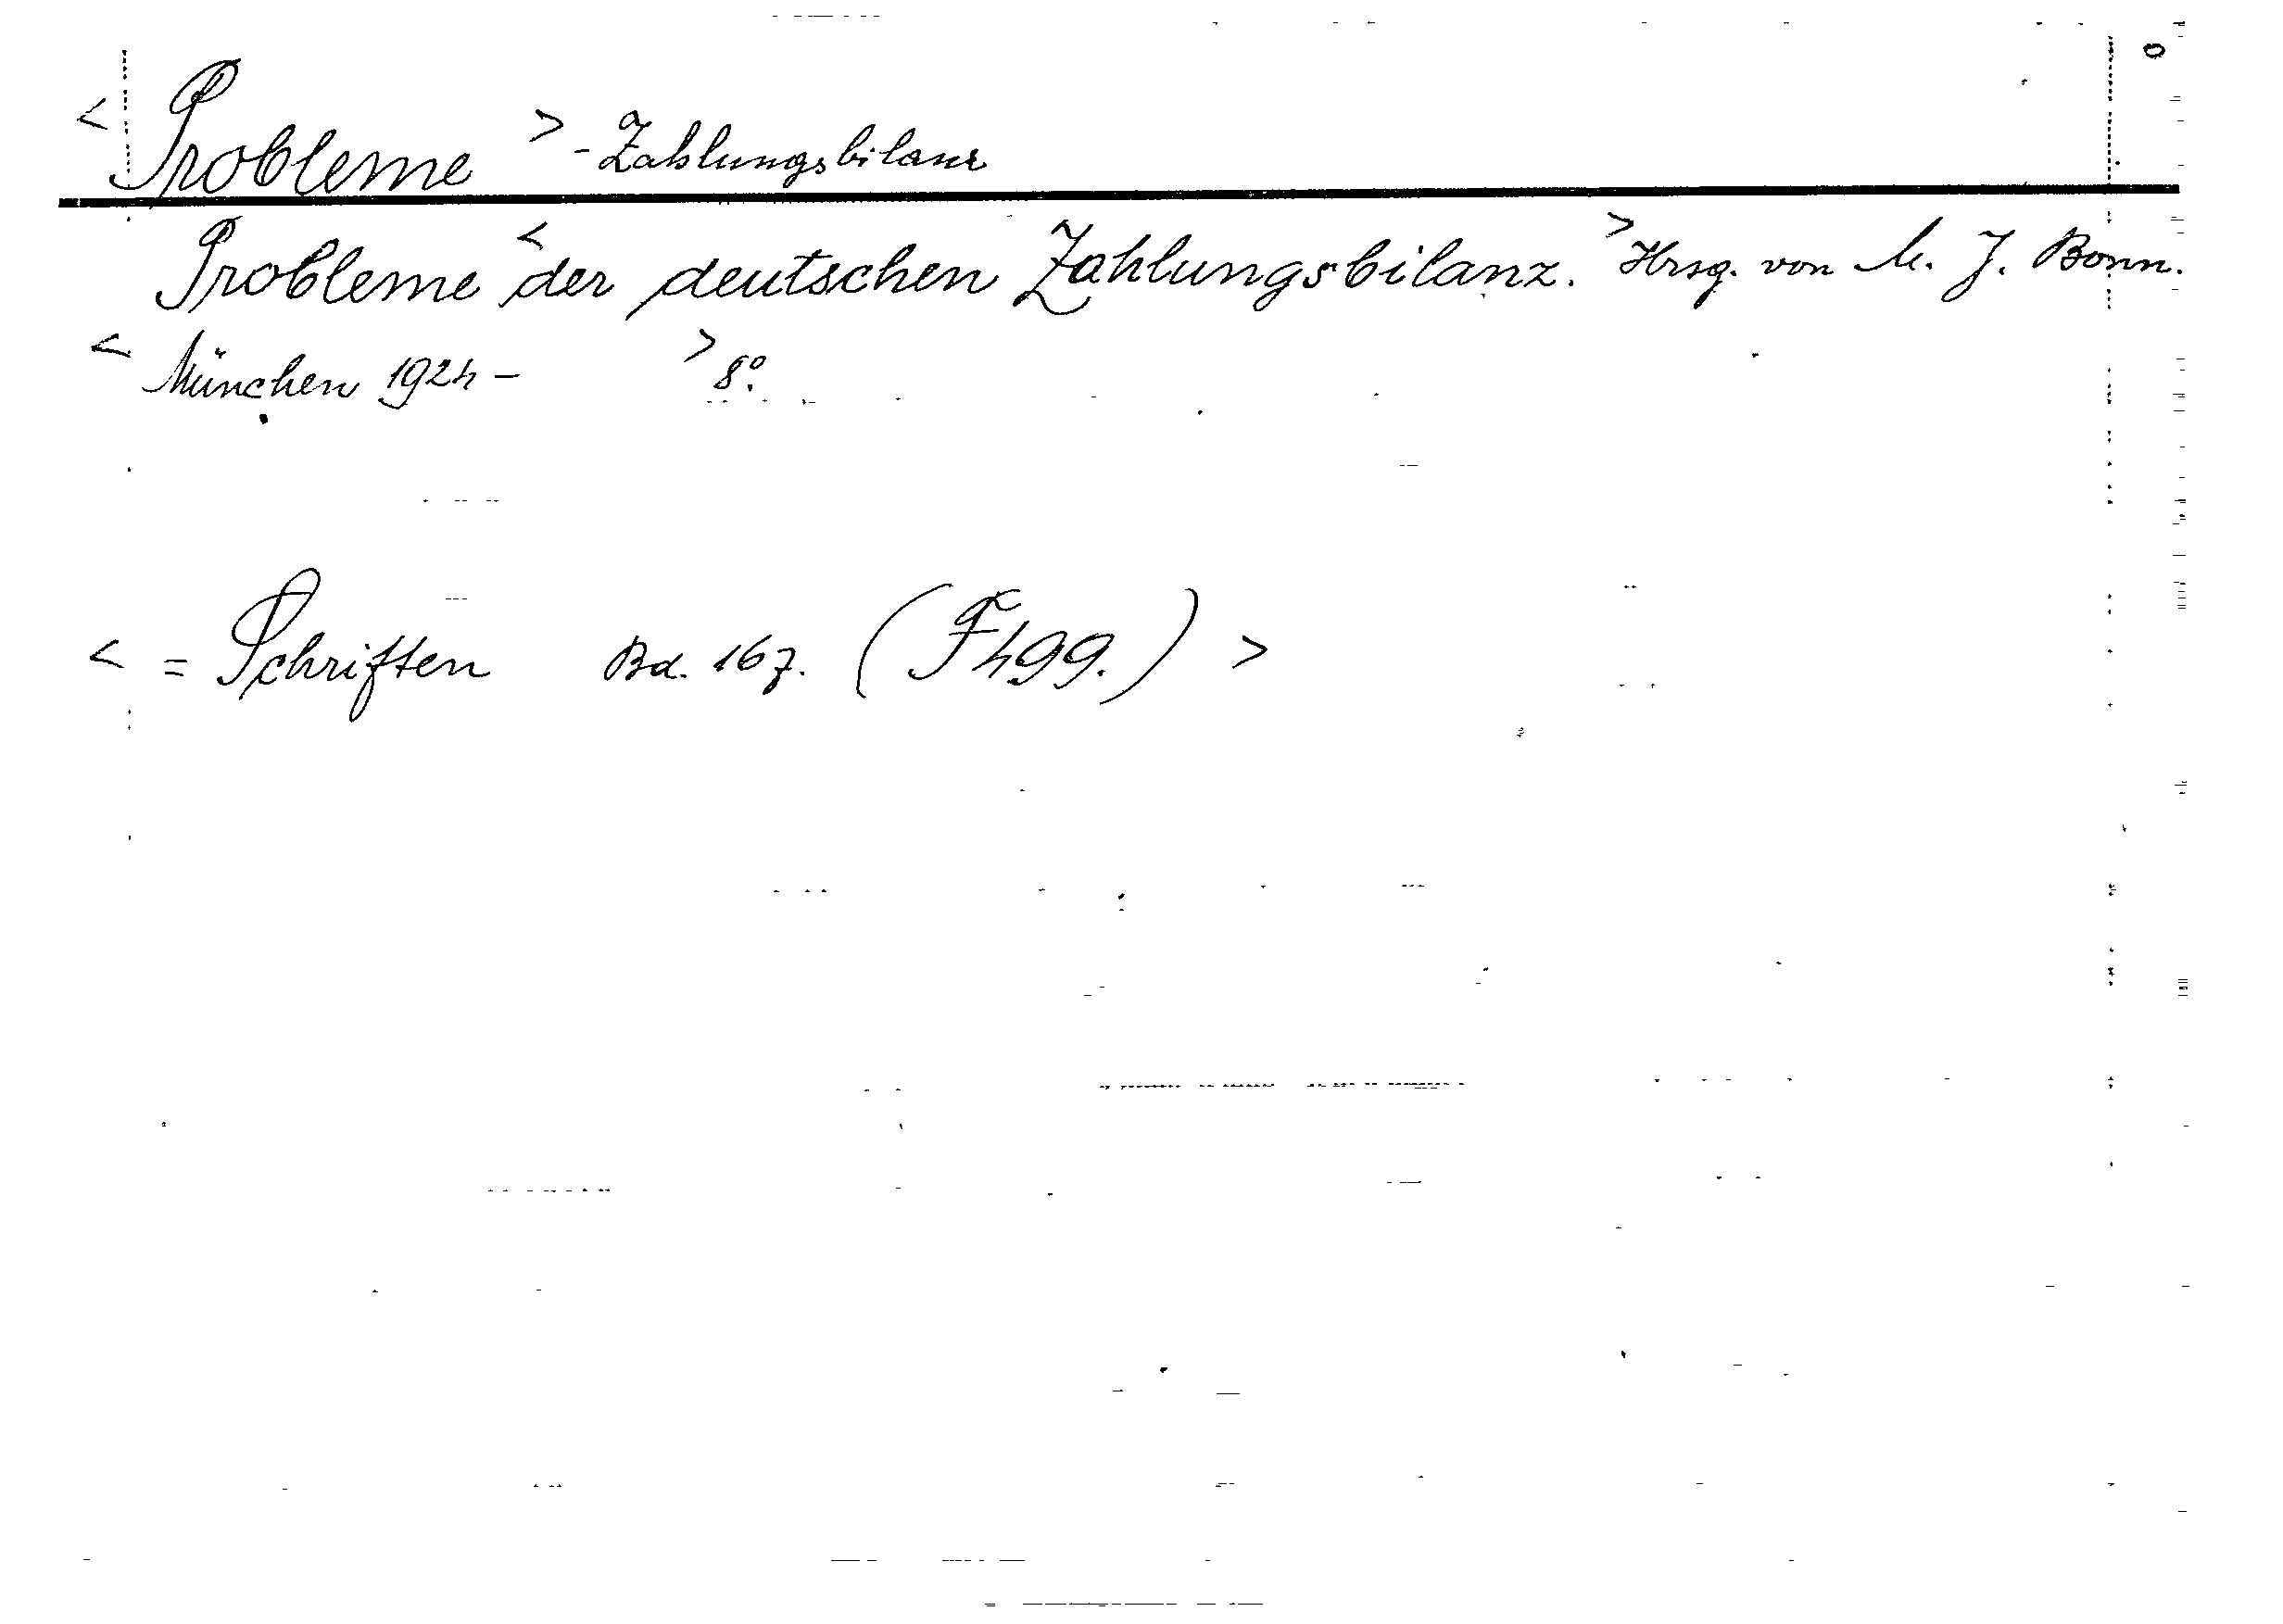 < Probleme > - Zahlungsbilanz
Probleme < der deutschen Zahlungsbilanz. > Hrsg. von M. J. Bonn.
< München 1924 - > 8º.
< = Schriften Bd. 167. (F 499.) >